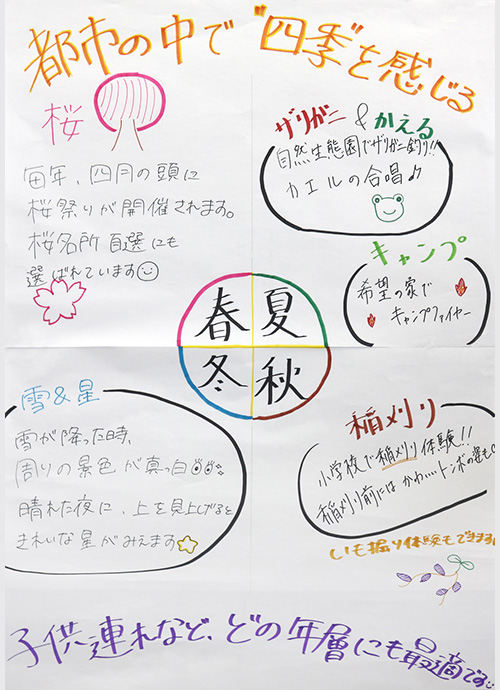 都市の中で"四季"を感じる
桜
毎年、四月の頭に
桜祭りが開催されます。
桜名所百選にも
選ばれています
ザリガニ&かえる
自然生態園でザリガニ釣り!!
カエルの合唱♪
キャンプ
希望の家で
キャンプファイヤー
春夏
冬秋
雪&星
雪が降った時、
周りの景色が真っ白
晴れた夜に、上を見上げると
きれいな星がみえます
稲刈り
小学校で稲刈り体験!!
稲刈り前にはかわいいトンボの姿も
いも掘り体験もできます!
子供連れなど、どの年層にも最適です